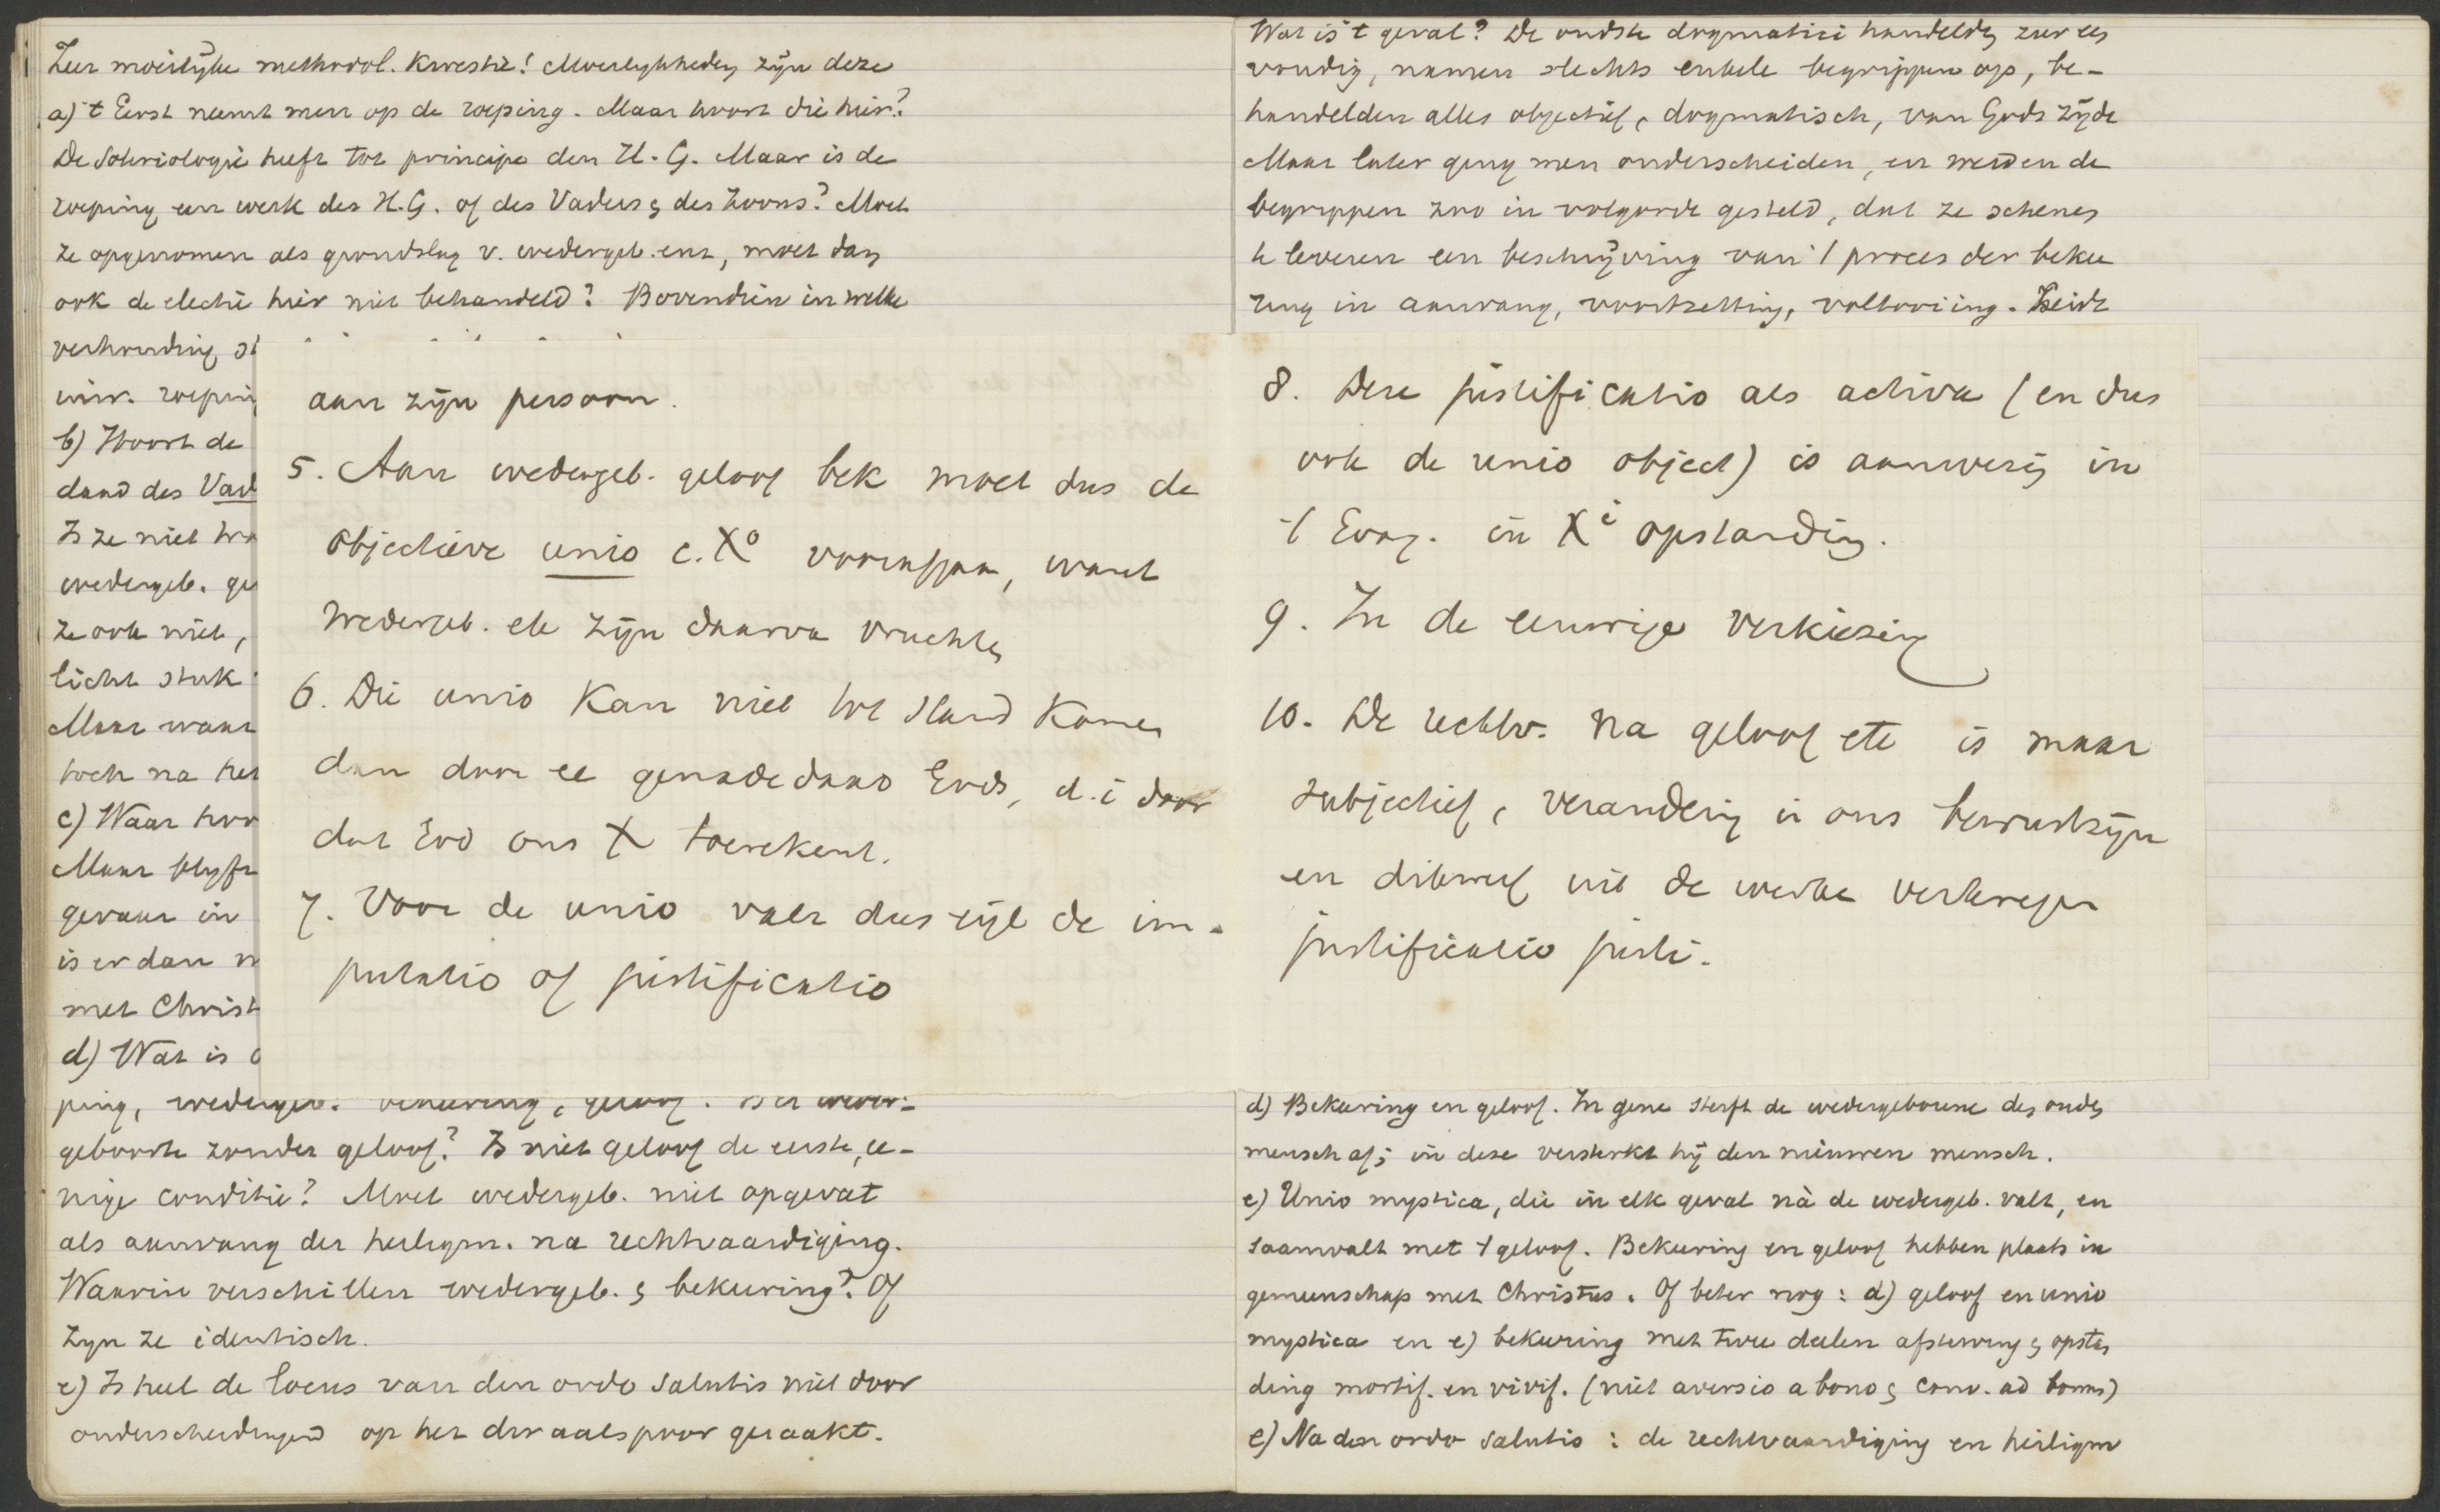 Zeer moeilijke methodol. kwestie! Moeilykheden zijn deze
a) 't Eerst neemt men op de roeping. Maar hoort die hier?
De Soteriologie heeft tot principe den H. G. Maar is de
roeping een werk des H.G. of des Vaders & des Zoons? Moet
ze opgenomen als grondslag v. wedergeb. enz, moet dan
ook de electie hier niet behandeld? Bovendien in welke
verhouding st
inw. roepin
b) Hoort de
daad des Vad
Is ze niet
wedergeb. ge
ze ook niet,
licht stuk
Maar waar
toch na het
c) Waar hoo
Maar blyft
gevaar in
is er dan n
met Christ
d) Wat is
ping, wedergeb. bekeering, geloof. Is er weder-
geboorte zonder geloof? Is niet geloof de eerste, ee-
nige conditie? Moet wedergeb. niet opgevat
als aanvang der heiligm. na rechtvaardiging.
Waarin verschillen wedergeb. & bekeering? Of
zyn ze identisch.
e) Is heel de locus van den ordo salutis niet door
onderscheidingen op het dwaalspoor geraakt.
aan zijn persoon.
5. Aan wedergeb. geloof bek moet dus de
objectieve unio c. Xo voorafgaan, want
wedergeb. etc zijn daarva vruchten
6. Die unio kan niet tot stand komen
dan door ee genadedaad Gods, d.i door
dat God ons X toerekent.
7. Voor de unio valt dus tijd de im-
putatio of justificatio
Wat is 't geval? De oudste dogmatici handelden zeer een
voudig, namen slechts enkele begrippen op, be-
handelden alles objectief, dogmatisch, van Gods zijde
Maar later ging men onderscheiden, en werden de
begrippen zoo in volgorde gesteld, dat ze schenen
te leveren een beschrijving van 't proces der bekee
ring in aanvang, voortzetting, voltooiing. Beide
8. Deze justificatio als activa (en dus
ook de unio object) is aanwezig in
't Evang. in Xi opstanding.
9. In de eeuwige verkiezing
10. De rechtv. na geloof etc is maar
subjectief, verandering in ons bewustzijn
en ditwijl uit de werken verkregen
justificatio justi.
d) Bekeering en geloof. In gene sterft de wedergeborene den ouden
mensch af; in deze versterkt hij den nieuwen mensch.
e) Unio mystica, die in elk geval nà de wedergeb. valt, en
saamvalt met 't geloof. Bekeering en geloof hebben plaats in
gemeenschap met Christus. Of beter nog: d) geloof en unio
mystica en e) bekeering met twee deelen afsterving & opstan
ding mortif. en vivif. (niet aversio a bono & conv. ad bonum)
e) Na den ordo salutis: de rechtvaardiging en heiligm